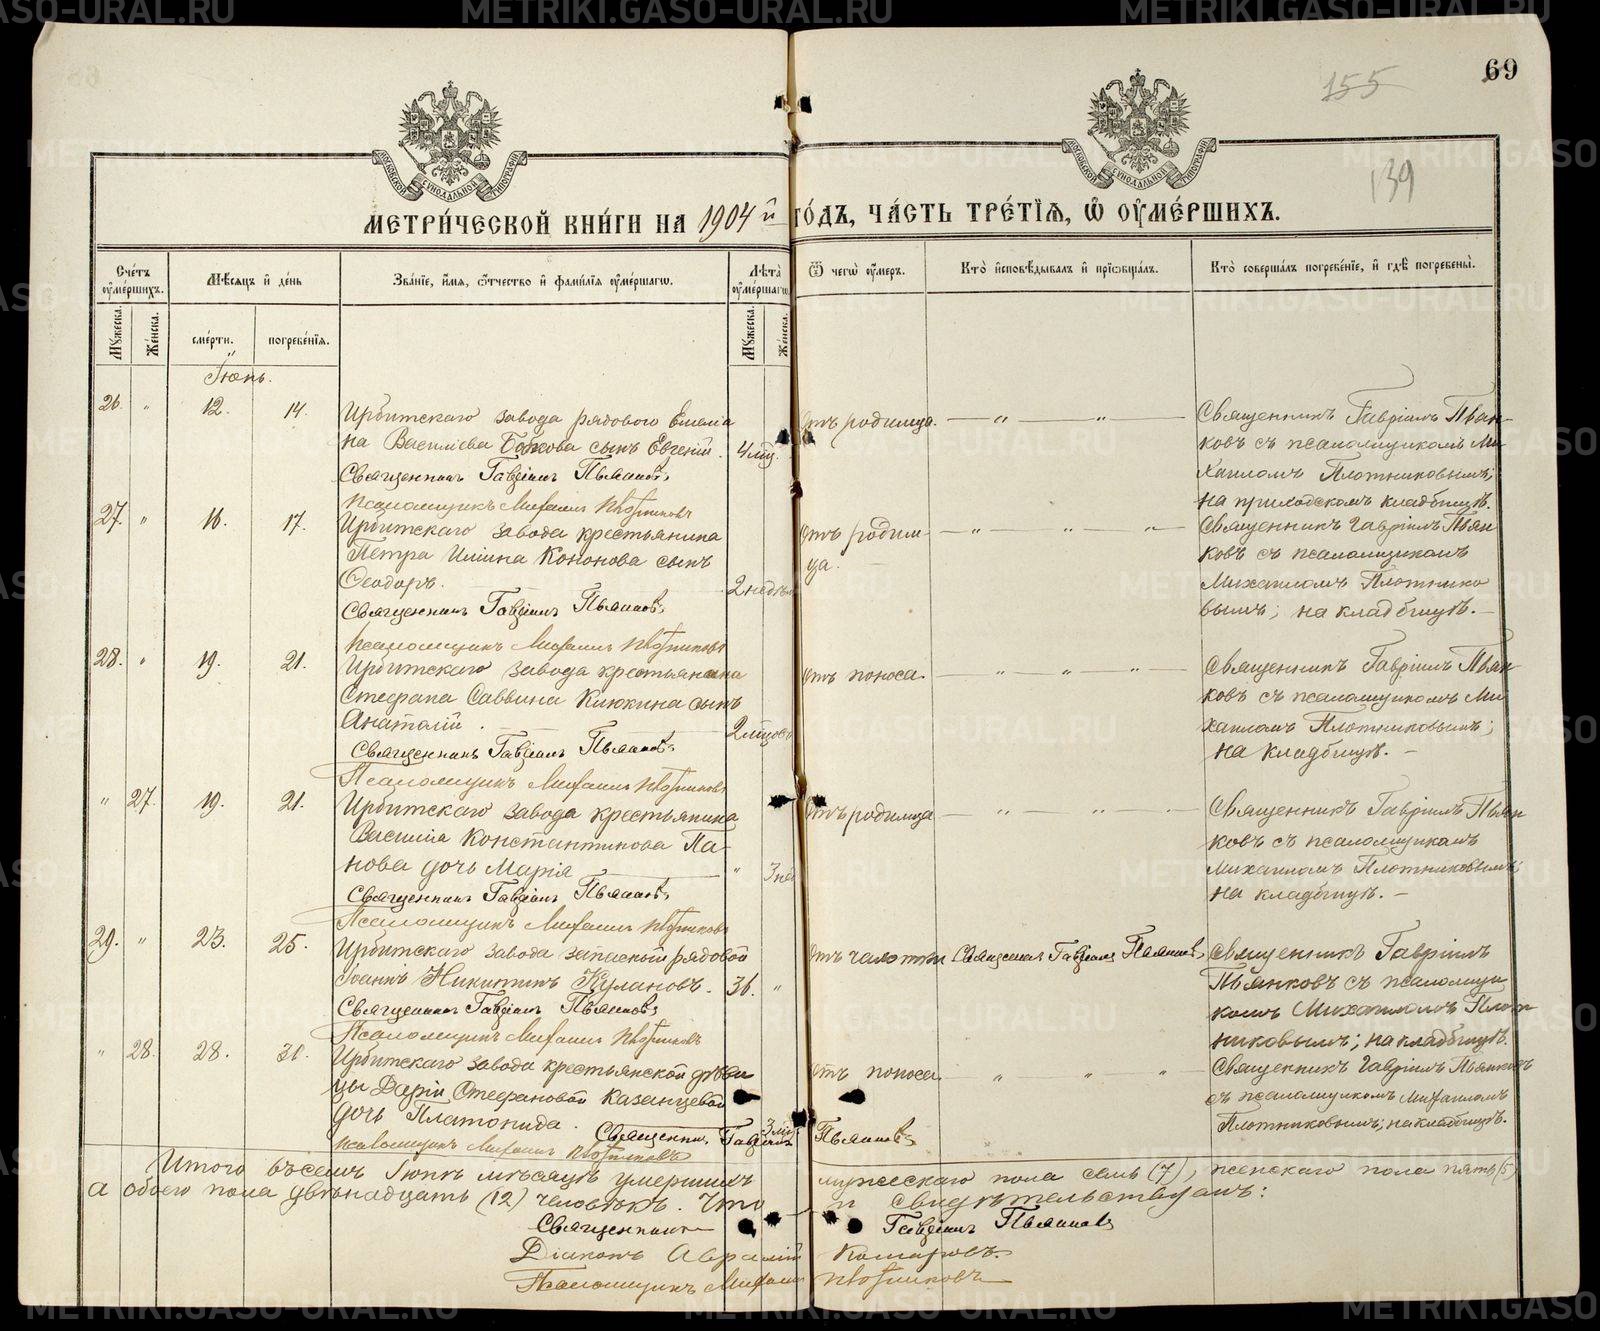 69
155
139
МОСКОВСКОЙ СѴНОДАЛЬНОЙ ТИПОГРАФІИ
МОСКОВСКОЙ СѴНОДАЛЬНОЙ ТИПОГРАФІИ
МЕТРИ́ЧЕСКОЙ КНИ́ГИ НА 1904 й ГО́ДЪ, ЧА́СТЬ ТРЕ́ТІѦ, Ѡ ОУМЕ́РШИХЪ.
Счётъ оумершихъ.
Мѣсяцъ и день
Званіе, имя, отчество и фамилія оумершагѡ.
Лѣта оумершагѡ
Ѿ чегѡ оумеръ.
Кто исповѣдывалъ и пріобщалъ.
Кто совершалъ погребеніе, и гдѣ погребены.
Мужеска. Женска. смерти. погребенія. Мужеска. Женска.
Іюнь.
26. " 12. 14.
Ирбитскаго завода рядового Емелiа
на Василіева Божова сынъ Евгеній. 4 мѣс.
Священникъ Гавріилъ Пьянковъ
Псаломщикъ Михаилъ Плотниковъ
Отъ родимца. — " — " —
Священникъ Гавріилъ Пьян-
ковъ съ псаломщикомъ Ми
хаиломъ Плотниковымъ;
на приходскомъ кладбищѣ.
27. " 16. 17.
Ирбитскаго завода крестьянина
Петра Ильина Кононова сынъ
Ѳеодоръ. 2 недѣли
Священникъ Гавріилъ Пьянковъ
Псаломщикъ Михаилъ Плотниковъ
Отъ родим-
ца. — " — " — " —
Священникъ Гавріилъ Пьян
ковъ съ псаломщикомъ
Михаиломъ Плотнико
вымъ; на кладбищѣ. —
28. " 19. 21.
Ирбитскаго завода крестьянина
Стефана Саввина Клюкина сынъ
Анатолій. 2 мѣсяц
Священникъ Гавріилъ Пьянковъ
Псаломщикъ Михаилъ Плотниковъ
Отъ поноса. — " — " — " —
Священникъ Гавріилъ Пьян
ковъ съ псаломщикомъ Ми
хаиломъ Плотниковымъ;
на кладбищѣ. —
" 27. 19. 21.
Ирбитскаго завода крестьянина
Василія Константинова Па-
нова дочь Марія " 3 нед
Священникъ Гавріилъ Пьянковъ
Псаломщикъ Михаилъ Плотниковъ
Отъ родимца — " — " — " —
Священникъ Гавріилъ Пьян
ковъ съ псаломщикомъ
Михаиломъ Плотниковымъ;
на кладбищѣ. —
29. " 23. 25.
Ирбитскаго завода запасной рядовой
Іоаннъ Никитинъ Кулановъ. 36. "
Священникъ Гавріилъ Пьянковъ
Псаломщикъ Михаилъ Плотниковъ
Отъ чахотки
Священникъ Гавріилъ Пьянковъ
Священникъ Гавріилъ
Пьянковъ съ псаломщи
комъ Михаиломъ Плот
никовымъ; на кладбищѣ.
" 28. 28. 30.
Ирбитскаго завода крестьянской дѣви
цы Даріи Стефановой Казанцевой
дочь Платонида. 3 мѣс
Священникъ Гавріилъ Пьянковъ
Псаломщикъ Михаилъ Плотниковъ
Отъ поноса. " " "
Священникъ Гавріилъ Пьянковъ
съ псаломщикомъ Михаиломъ
Плотниковымъ; на кладбищѣ.
Итого въ семъ Іюнѣ мѣсяцѣ умершихъ мужескаго пола семь (7), женскаго пола пять (5)
а обоего пола двѣнадцать (12) человѣкъ. Что и свидѣтельствуемъ:
Священникъ Гавріилъ Пьянковъ
Діаконъ Авраамій Комаровъ.
Псаломщикъ Михаилъ Плотниковъ
METRIKI.GASO-URAL.RU